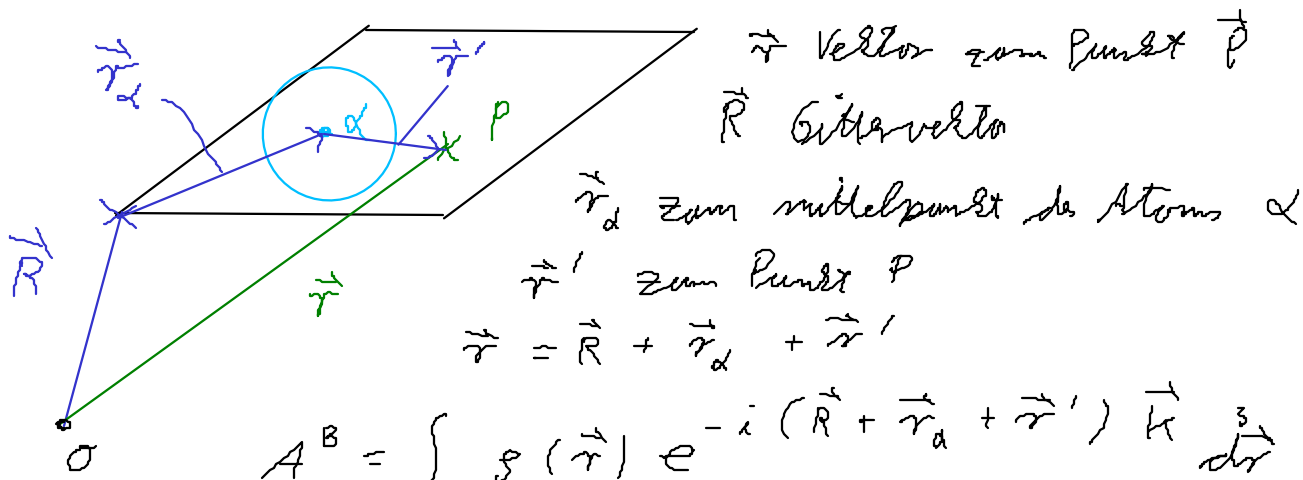 r⃗ Vektor zum Punkt P⃗
R⃗ Gittervektor
r⃗_α zum mittelpunkt des Atoms α
r⃗' zum Punkt P
r⃗ = R⃗ + r⃗_α + r⃗'
A^B = ∫ ρ(r⃗) e^{-i(R⃗ + r⃗_α + r⃗')K⃗} d³r⃗
r⃗_α
r⃗'
α
P
R⃗
r⃗
O